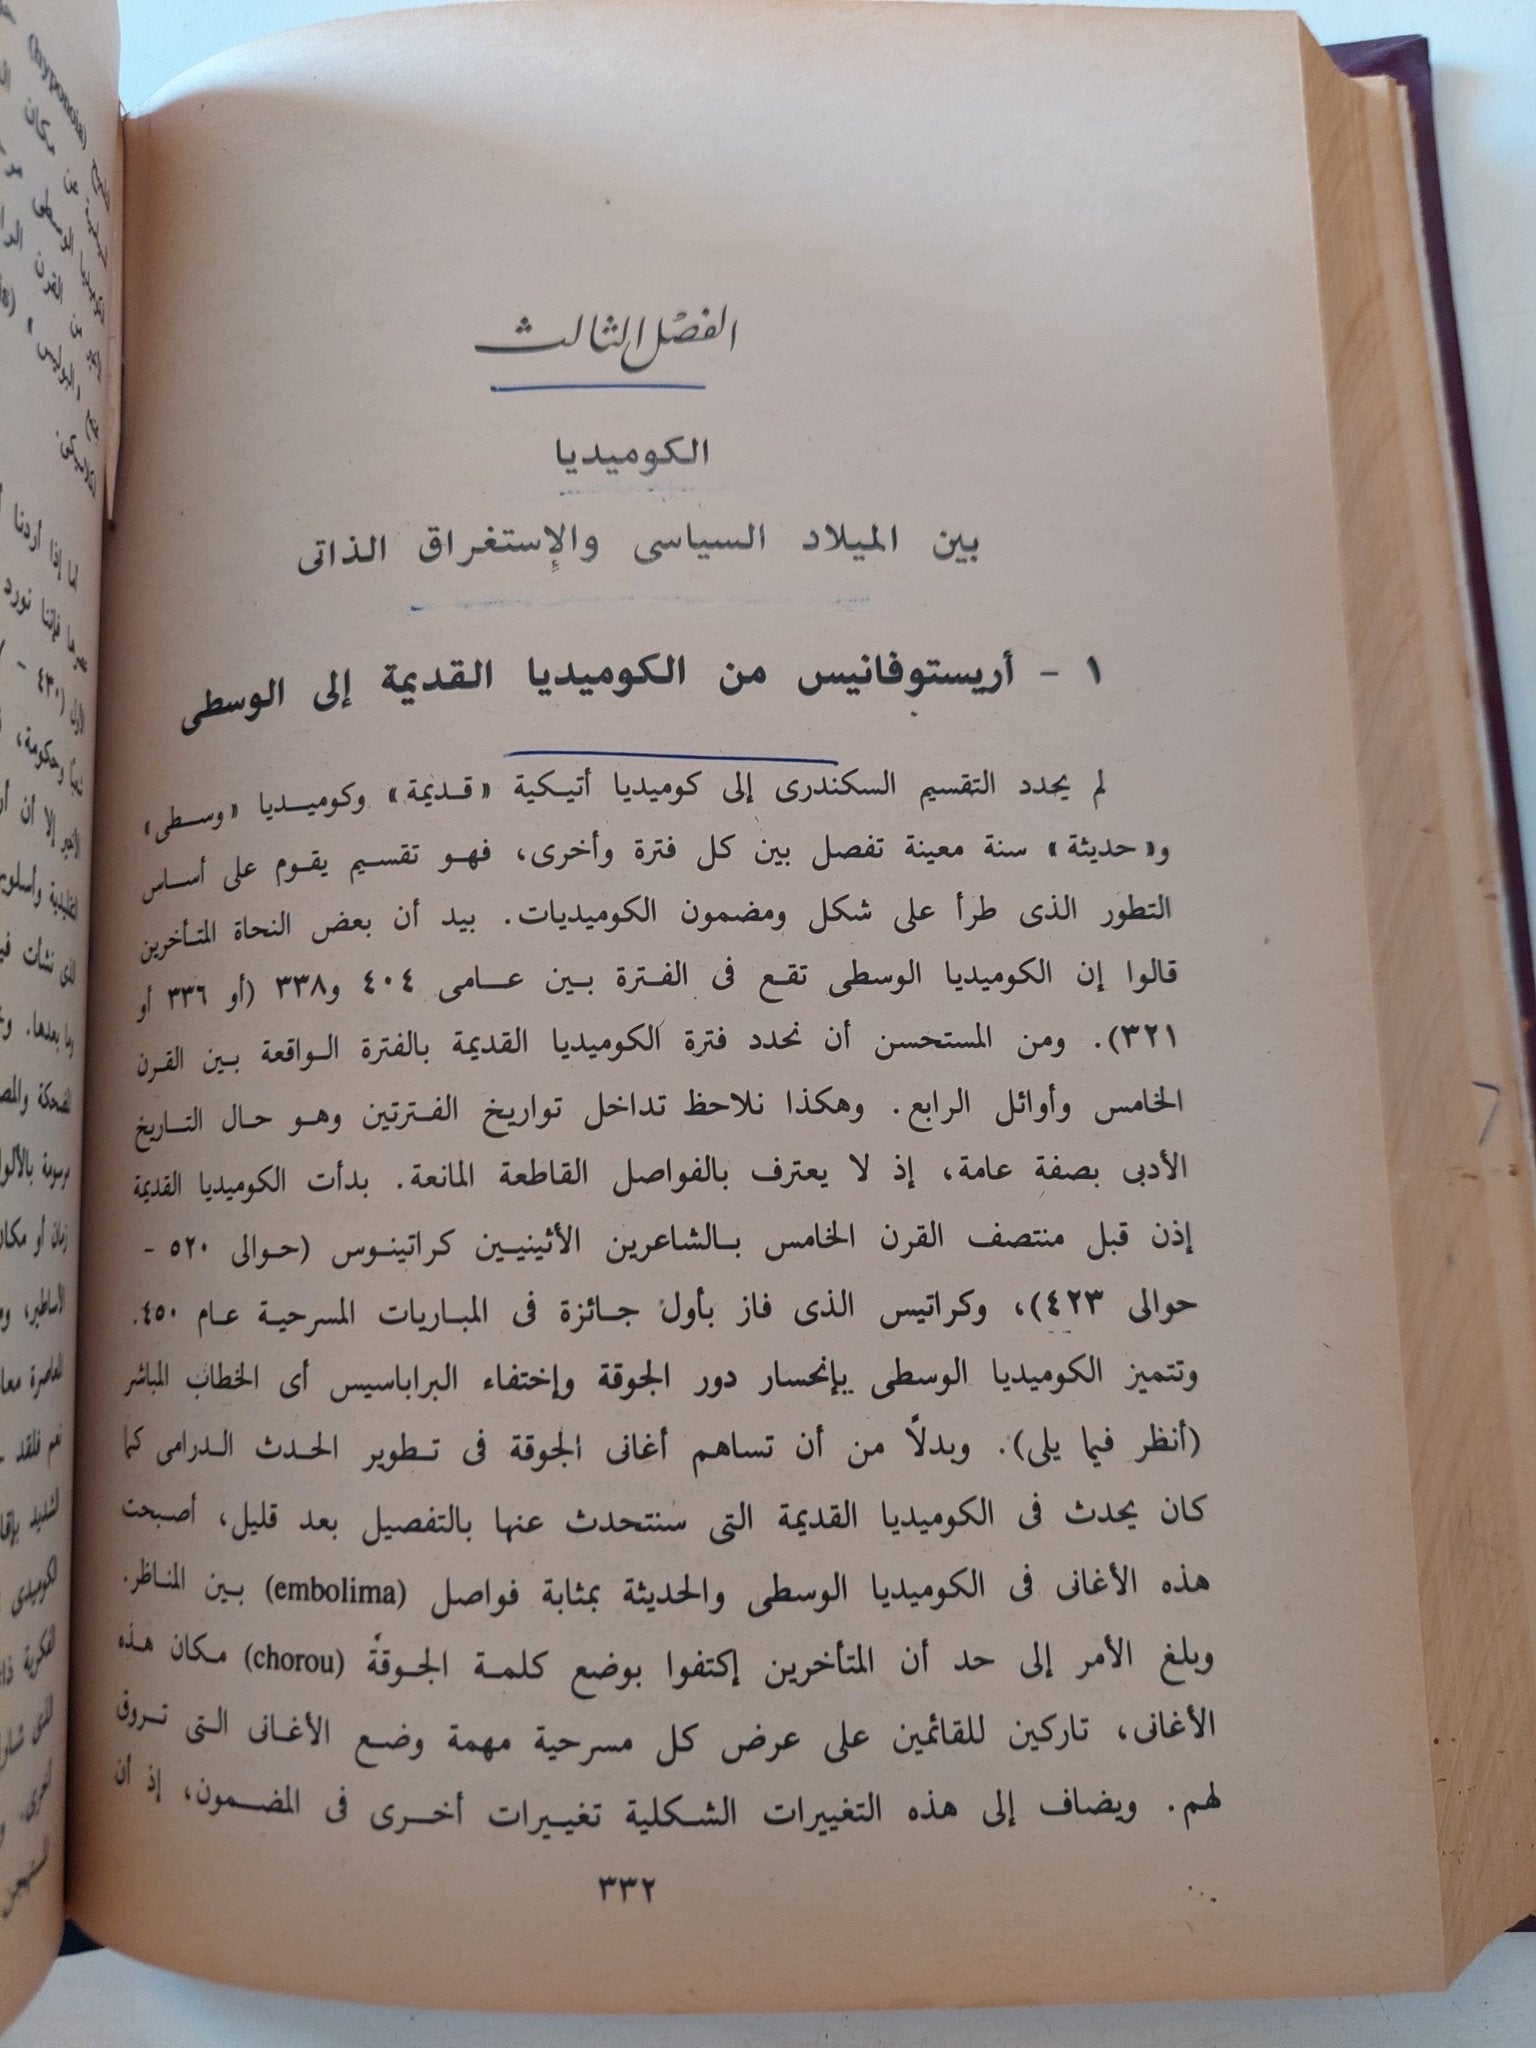 الفصل الثالث
الكوميديا
بين الميلاد السياسى والإستغراق الذاتى
١ - أريستوفانيس من الكوميديا القديمة إلى الوسطى
لم يحدد التقسيم السكندرى إلى كوميديا أتيكية «قديمة» وكوميديا «وسطى»
و«حديثة» سنة معينة تفصل بين كل فترة وأخرى، فهو تقسيم يقوم على أساس
التطور الذى طرأ على شكل ومضمون الكوميديات. بيد أن بعض النحاة المتأخرين
قالوا إن الكوميديا الوسطى تقع فى الفترة بين عامى ٤٠٤ و٣٣٨ (أو ٣٣٦ أو
٣٢١). ومن المستحسن أن نحدد فترة الكوميديا القديمة بالفترة الواقعة بين القرن
الخامس وأوائل الرابع. وهكذا نلاحظ تداخل تواريخ الفترتين وهو حال التاريخ
الأدبى بصفة عامة، إذ لا يعترف بالفواصل القاطعة المانعة. بدأت الكوميديا القديمة
إذن قبل منتصف القرن الخامس بالشاعرين الأثينيين كراتينوس (حوالى ٥٢٠ -
حوالى ٤٢٣)، وكراتيس الذى فاز بأول جائزة فى المباريات المسرحية عام ٤٥٠.
وتتميز الكوميديا الوسطى بإنحسار دور الجوقة وإختفاء البراباسيس أى الخطاب المباشر
(أنظر فيما يلى). وبدلاً من أن تساهم أغانى الجوقة فى تطوير الحدث الدرامى كما
كان يحدث فى الكوميديا القديمة التى سنتحدث عنها بالتفصيل بعد قليل، أصبحت
هذه الأغانى فى الكوميديا الوسطى والحديثة بمثابة فواصل (embolima) بين المناظر.
وبلغ الأمر إلى حد أن المتأخرين إكتفوا بوضع كلمة الجوقة (chorou) مكان هذه
الأغانى، تاركين للقائمين على عرض كل مسرحية مهمة وضع الأغانى التى تروق
لهم. ويضاف إلى هذه التغييرات الشكلية تغييرات أخرى فى المضمون، إذ أن
٣٣٢